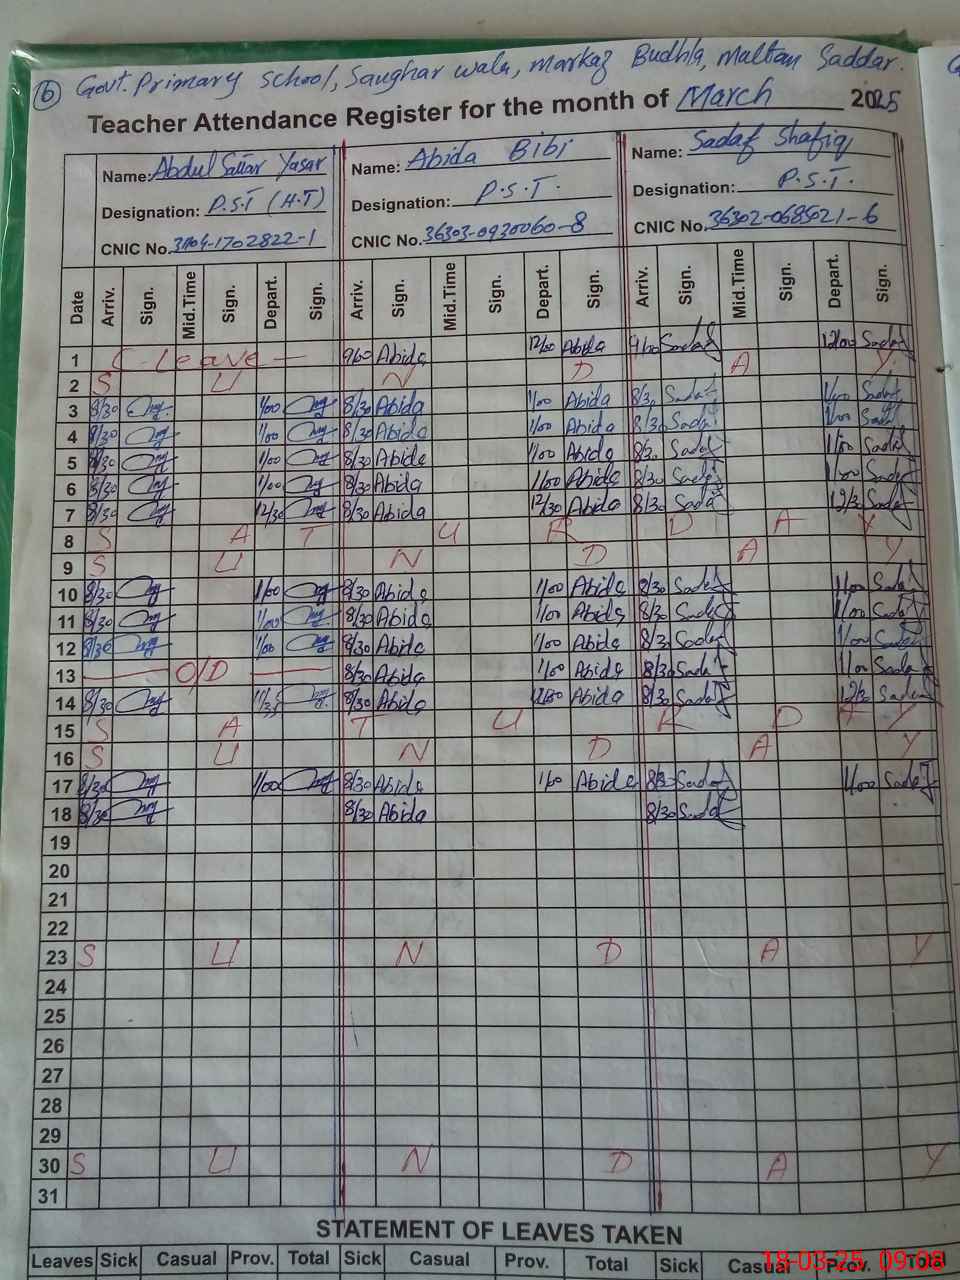 6 Govt. Primary School, Saughar wala, Markaz Budhla, Maltan Saddar.
Teacher Attendance Register for the month of March 2025
Name: Abdul Sattar Yasar Name: Abida Bibi Name: Sadaf Shafiq
Designation: P.S.T (H.T) Designation: P.S.T. Designation: P.S.T.
CNIC No. CNIC No. 36303-0930060-8 CNIC No. 36302-0685021-6
Date Arriv. Sign. Mid.Time Sign. Depart. Sign. Arriv. Sign. Mid.Time Sign. Depart. Sign. Arriv. Sign. Mid.Time Sign. Depart. Sign.
1 C-Leave 9/00 Abida 12/00 Abida 9/00 Sadaf 12/00 Sadaf
2 S U N D A Y
3 8/30 1/00 8/30 Abida 1/00 Abida 8/30 Sadaf 1/00 Sadaf
4 8/30 1/00 8/30 Abida 1/00 Abida 8/30 Sadaf 1/00 Sadaf
5 8/30 1/00 8/30 Abida 1/00 Abida 8/30 Sadaf 1/00 Sadaf
6 8/30 1/00 8/30 Abida 1/00 Abida 8/30 Sadaf 1/00 Sadaf
7 8/30 12/30 8/30 Abida 12/30 Abida 8/30 Sadaf 12/30 Sadaf
8 S A T U R D A Y
9 S U N D A Y
10 8/30 1/00 8/30 Abida 1/00 Abida 8/30 Sadaf 1/00 Sadaf
11 8/30 1/00 8/30 Abida 1/00 Abida 8/30 Sadaf 1/00 Sadaf
12 8/30 1/00 8/30 Abida 1/00 Abida 8/30 Sadaf 1/00 Sadaf
13 O/D 8/30 Abida 1/00 Abida 8/30 Sadaf 1/00 Sadaf
14 8/30 8/30 Abida Abida 8/30 Sadaf 12/30 Sadaf
15 S A T U R D A Y
16 S U N D A Y
17 8/30 1/00 8/30 Abida 1/00 Abida 8/30 Sadaf 1/00 Sadaf
18 8/30 8/30 Abida 8/30 Sadaf
19
20
21
22
23 S U N D A Y
24
25
26
27
28
29
30 S U N D A Y
31
STATEMENT OF LEAVES TAKEN
Leaves Sick Casual Prov. Total Sick Casual Prov. Total Sick Casual Prov. Total
18-03-25 09:08